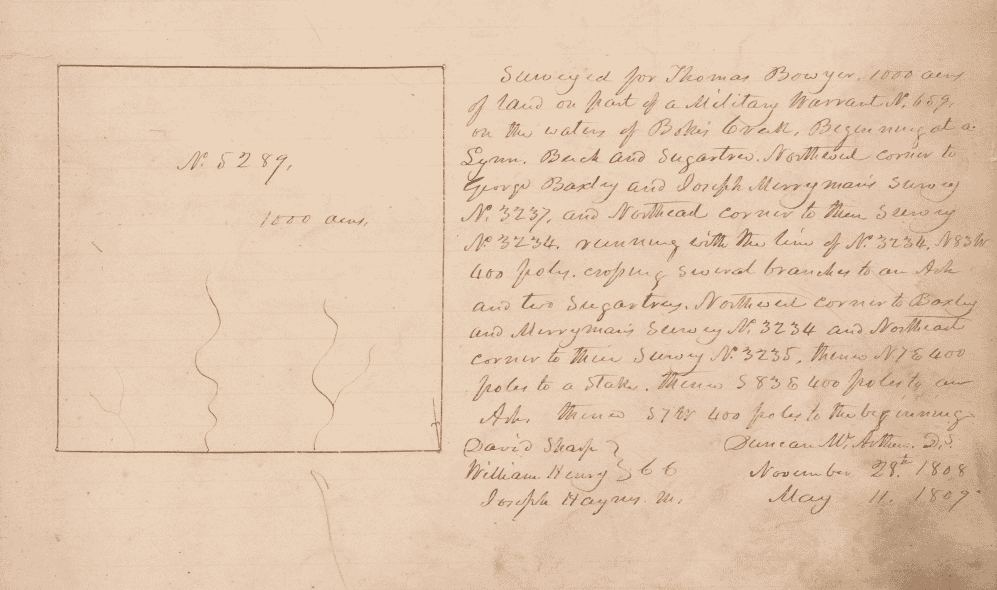 No. 5289,
1000 acres,
Surveyed for Thomas Bowyer. 1000 acres
of land on part of a Military Warrant No. 659,
on the waters of Bokes Creek, Beginning at a
Lynn. Beech and Sugartree. Northwest corner to
George Baxley and Joseph Merryman's Survey
No. 3237, and Northeast corner to their Survey
No. 3234. running with the line of No. 3234. N83W
400 poles. crossing several branches to an Ash
and two Sugartrees. Northwest corner to Baxley
and Merryman's Survey No. 3234 and Northeast
corner to their Survey No. 3235, thence N7E 400
poles to a Stake. thence S83E 400 poles to an
Ash, thence S7W 400 poles to the beginning
David Sharp
William Henry } CC
Joseph Haynes. m.
Duncan McArthur. D.S.
November 29th. 1808
May 11. 1809